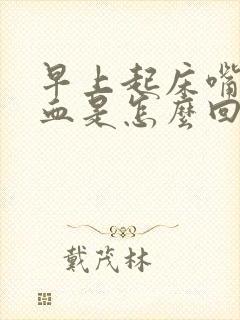 早上起床嘴
血是怎麼回
戴茂林